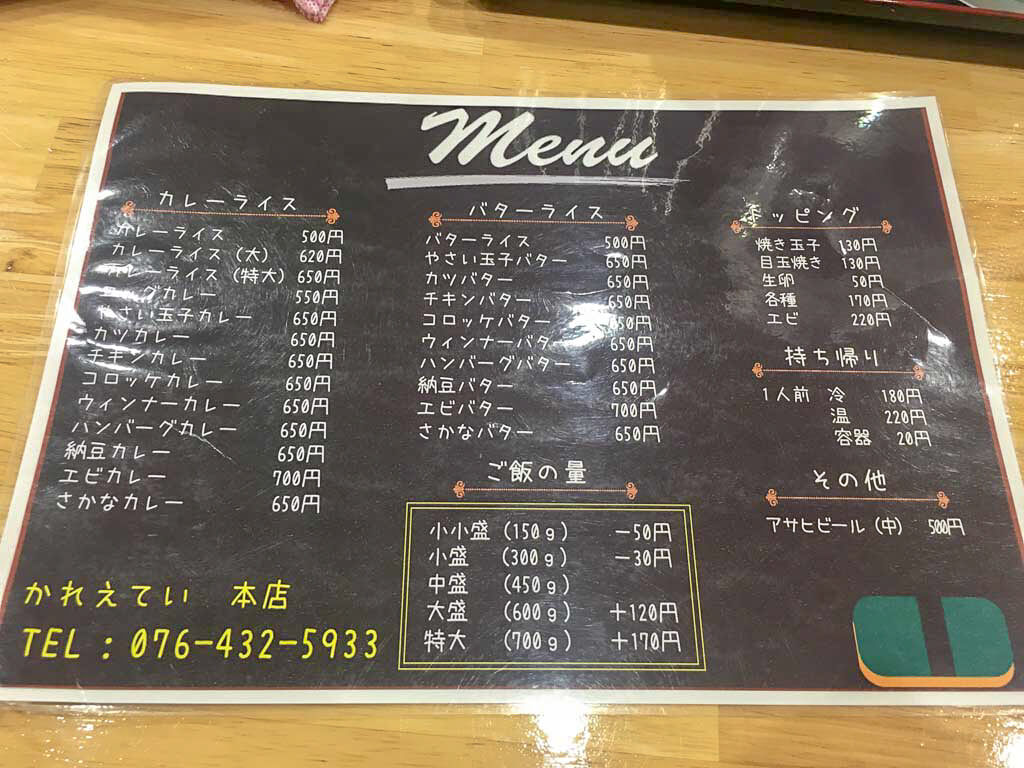 Menu
カレーライス
カレーライス 500円
カレーライス（大） 620円
カレーライス（特大） 650円
カレー 550円
やさい玉子カレー 650円
カツカレー 650円
チキンカレー 650円
コロッケカレー 650円
ウィンナーカレー 650円
ハンバーグカレー 650円
納豆カレー 650円
エビカレー 700円
さかなカレー 650円
かれえてい 本店
TEL：076-432-5933
バターライス
バターライス 500円
やさい玉子バター 650円
カツバター 650円
チキンバター 650円
コロッケバター 650円
ウィンナーバター 650円
ハンバーグバター 650円
納豆バター 650円
エビバター 700円
さかなバター 650円
ご飯の量
小小盛 (150g) －50円
小盛 (300g) －30円
中盛 (450g)
大盛 (600g) ＋120円
特大 (700g) ＋170円
トッピング
焼き玉子 130円
目玉焼き 130円
生卵 50円
各種 170円
エビ 220円
持ち帰り
1人前 冷 180円
温 220円
容器 20円
その他
アサヒビール（中） 500円